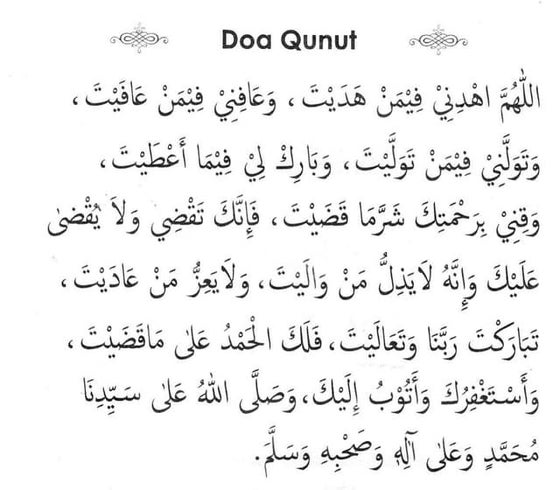 Doa Qunut
اللّٰهُمَّ اهْدِنِيْ فِيْمَنْ هَدَيْتَ، وَعَافِنِيْ فِيْمَنْ عَافَيْتَ،
وَتَوَلَّنِيْ فِيْمَنْ تَوَلَّيْتَ، وَبَارِكْ لِيْ فِيْمَا أَعْطَيْتَ،
وَقِنِيْ بِرَحْمَتِكَ شَرَّمَا قَضَيْتَ، فَإِنَّكَ تَقْضِي وَلاَ يُقْضٰى
عَلَيْكَ وَإِنَّهُ لاَيَذِلُّ مَنْ وَالَيْتَ، وَلاَيَعِزُّ مَنْ عَادَيْتَ،
تَبَارَكْتَ رَبَّنَا وَتَعَالَيْتَ، فَلَكَ الْحَمْدُ عَلٰى مَاقَضَيْتَ،
وَأَسْتَغْفِرُكَ وَأَتُوْبُ إِلَيْكَ، وَصَلَّى اللهُ عَلٰى سَيِّدِنَا
مُحَمَّدٍ وَعَلٰى آلِهِ وَصَحْبِهِ وَسَلَّمَ.